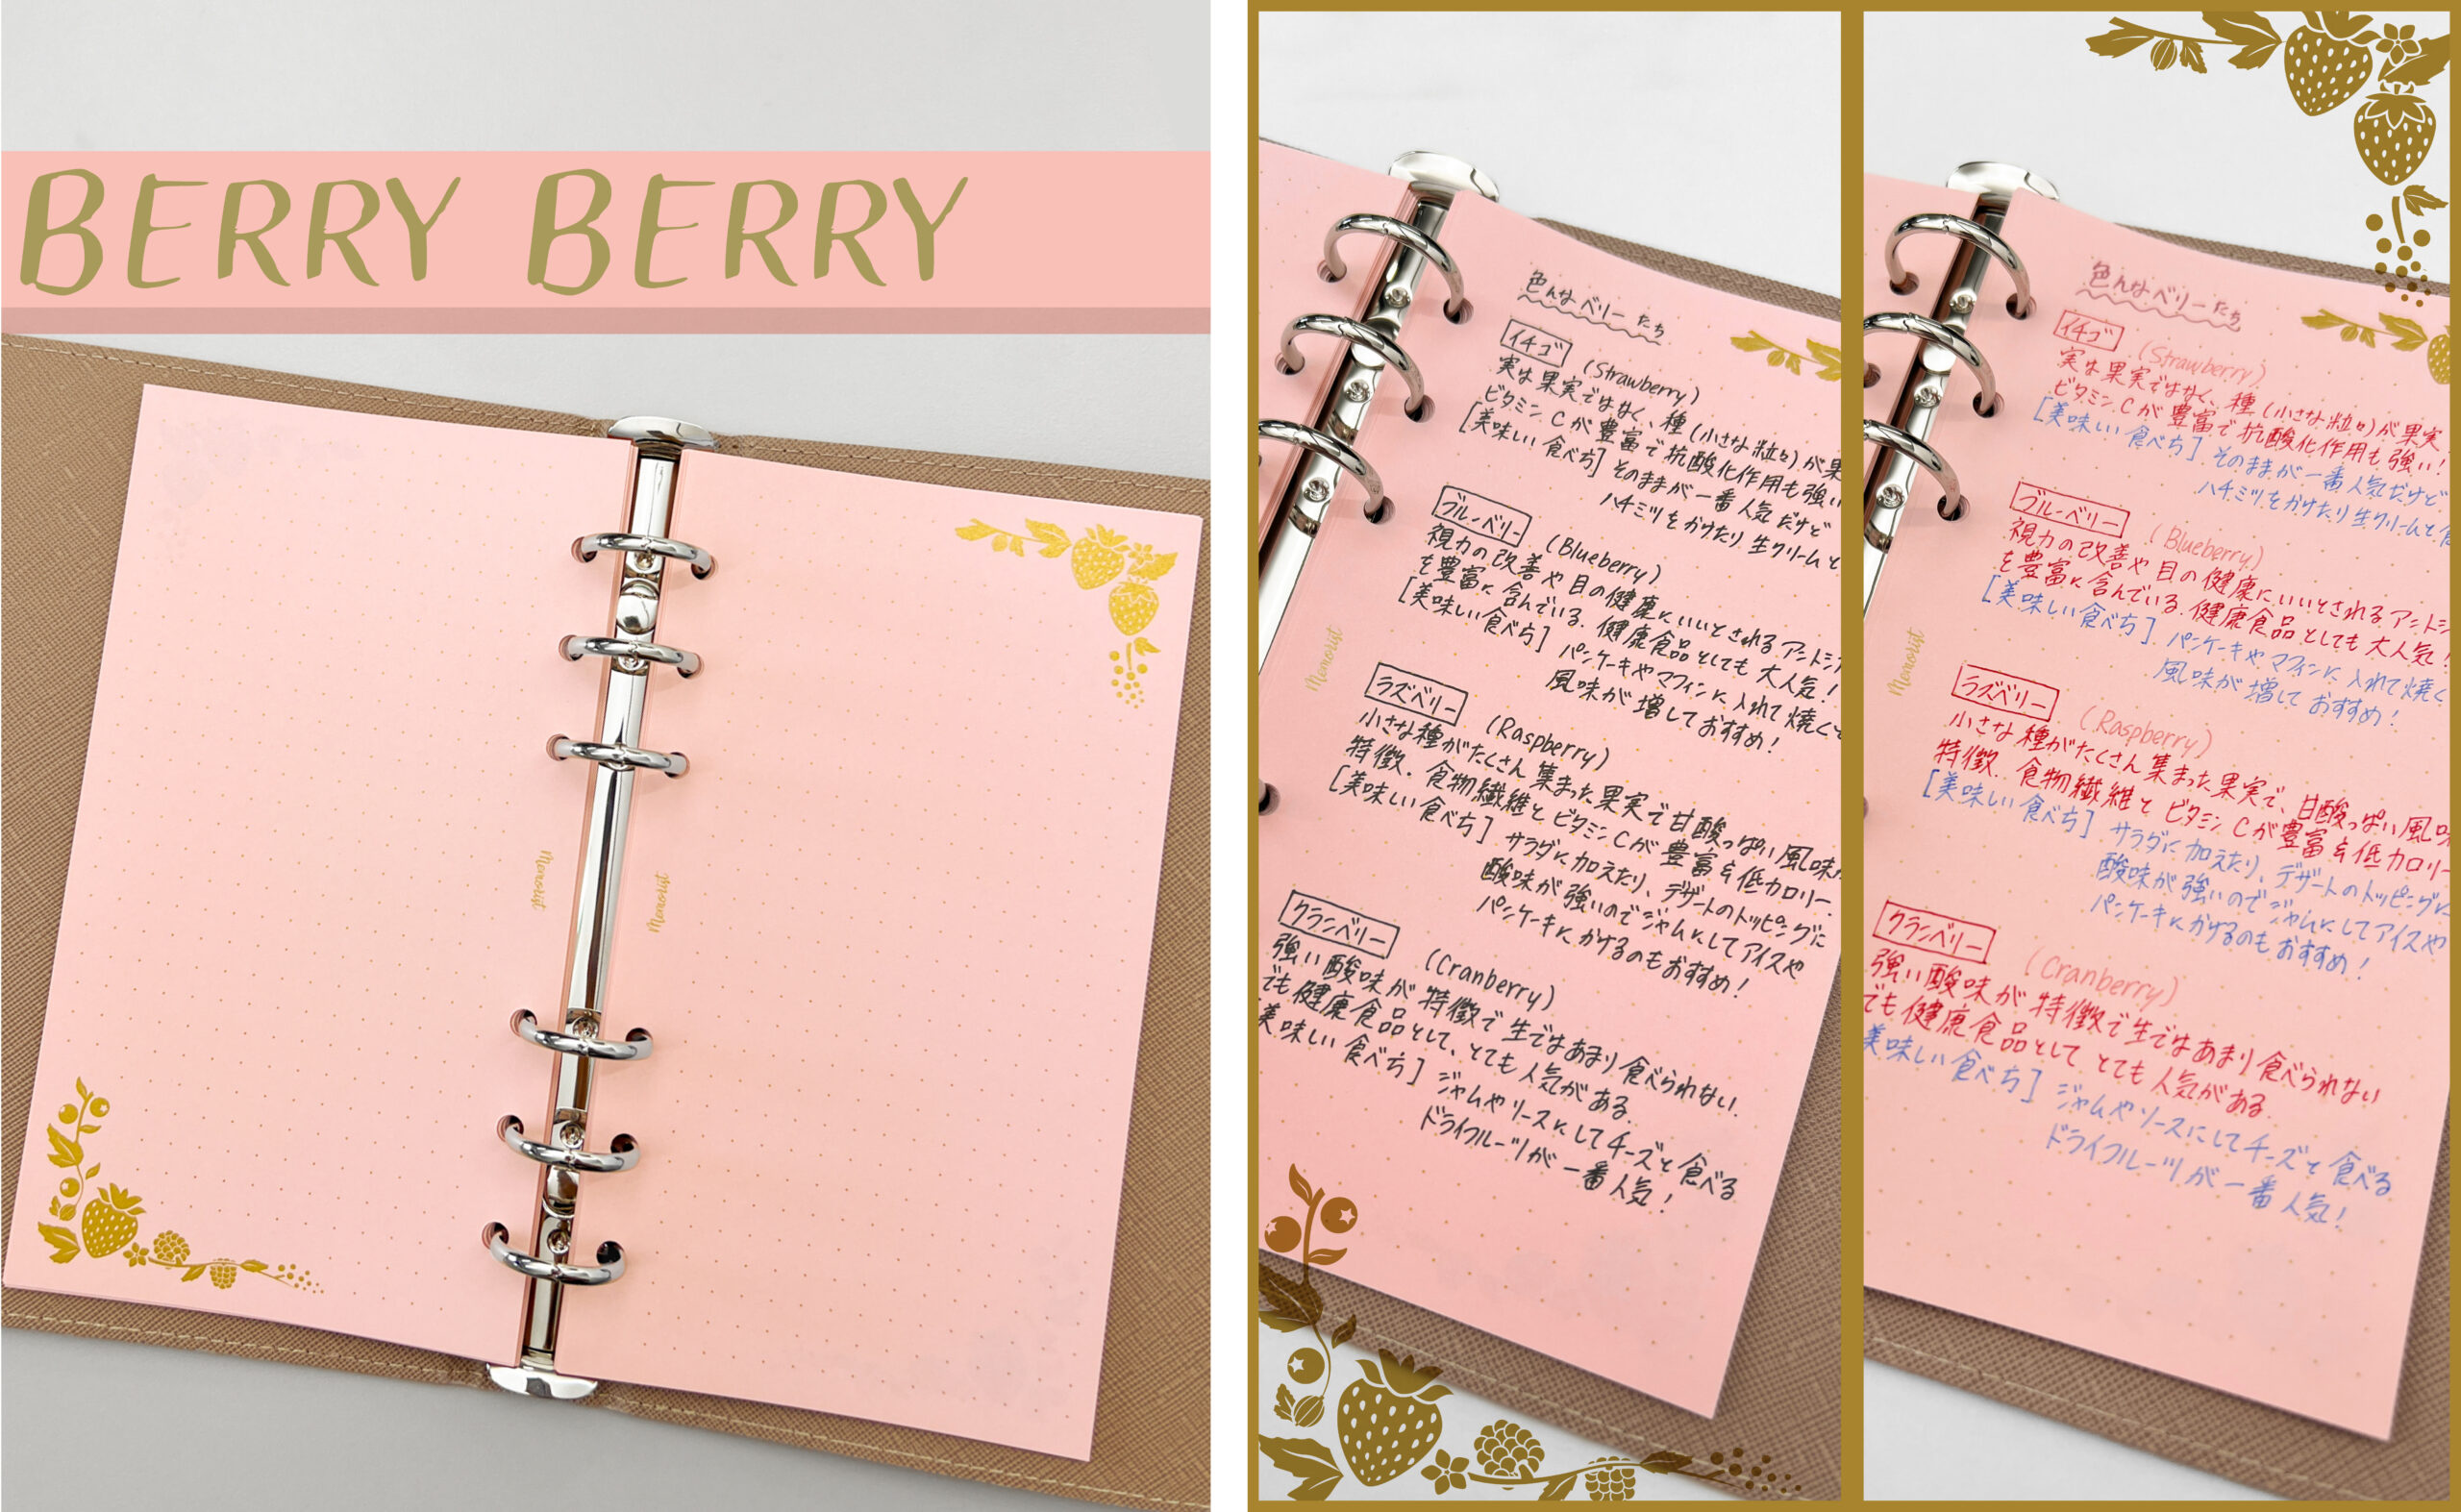 BERRY BERRY
Memorist
Memorist
色んなベリーたち
イチゴ (Strawberry)
実は果実ではなく、種(小さな粒々)が果
ビタミンCが豊富で抗酸化作用も強い
[美味しい食べ方] そのままが一番人気だけど
ハチミツをかけたり生クリームと
ブルーベリー (Blueberry)
視力の改善や目の健康にいいとされるアントシア
を豊富に含んでいる。健康食品としても大人気!
[美味しい食べ方] パンケーキやマフィンに入れて焼くと
風味が増しておすすめ!
ラズベリー (Raspberry)
小さな種がたくさん集まった果実で甘酸っぱい風味
特徴。食物繊維とビタミンCが豊富&低カロリー。
[美味しい食べ方] サラダに加えたり、デザートのトッピングに
酸味が強いのでジャムにしてアイスや
パンケーキにかけるのもおすすめ!
クランベリー (Cranberry)
強い酸味が特徴で生ではあまり食べられない。
でも健康食品として、とても人気がある。
美味しい食べ方] ジャムやソースにしてチーズと食べる
ドライフルーツが一番人気!
Memorist
色んなベリーたち
イチゴ (Strawberry)
実は果実ではなく、種(小さな粒々)が果実
ビタミンCが豊富で抗酸化作用も強い!
[美味しい食べ方] そのままが一番人気だけど
ハチミツをかけたり生クリームと
ブルーベリー (Blueberry)
視力の改善や目の健康にいいとされるアントシ
を豊富に含んでいる。健康食品としても大人気!
[美味しい食べ方] パンケーキやマフィンに入れて焼く
風味が増しておすすめ!
ラズベリー (Raspberry)
小さな種がたくさん集まった果実で、甘酸っぱい風味
特徴。食物繊維とビタミンCが豊富&低カロリー
[美味しい食べ方] サラダに加えたり、デザートのトッピングに
酸味が強いのでジャムにしてアイスや
パンケーキにかけるのもおすすめ!
クランベリー (Cranberry)
強い酸味が特徴で生ではあまり食べられない
でも健康食品として とても人気がある
美味しい食べ方] ジャムやソースにしてチーズと食べる
ドライフルーツが一番人気!
Memorist